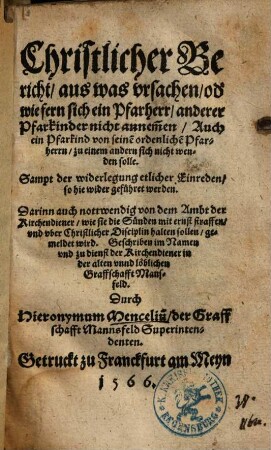 Christlicher Be
richt/ aus was vrsachen/ od
wiefern sich ein Pfarherr/ anderer
Pfarkinder nicht annemẽ/ Auch
ein Pfarkind von seinẽ ordenlichẽ Pfar-
herrn/ zu einem andern sich nicht wen-
den solle.
Sampt der widerlegung etlicher Einreden/
so hie wider geführet werden.
Darinn auch nottwendig von dem Ambt der
Kirchendiener/ wie sie die Sünden mit ernst straffen/
vnd vber Christlicher Disciplin halten sollen/ ge-
meldet wird. Geschriben im Namen
vnd zu dienst der Kirchendiener in
der alten vnnd löblichen
Graffschafft Mans-
feld.
Durch
Hieronymum Menceliũ/ der Graff
schafft Mannsfeld Superinten-
denten.
Getruckt zu Franckfurt am Meyn
1566.
REGENSBURG